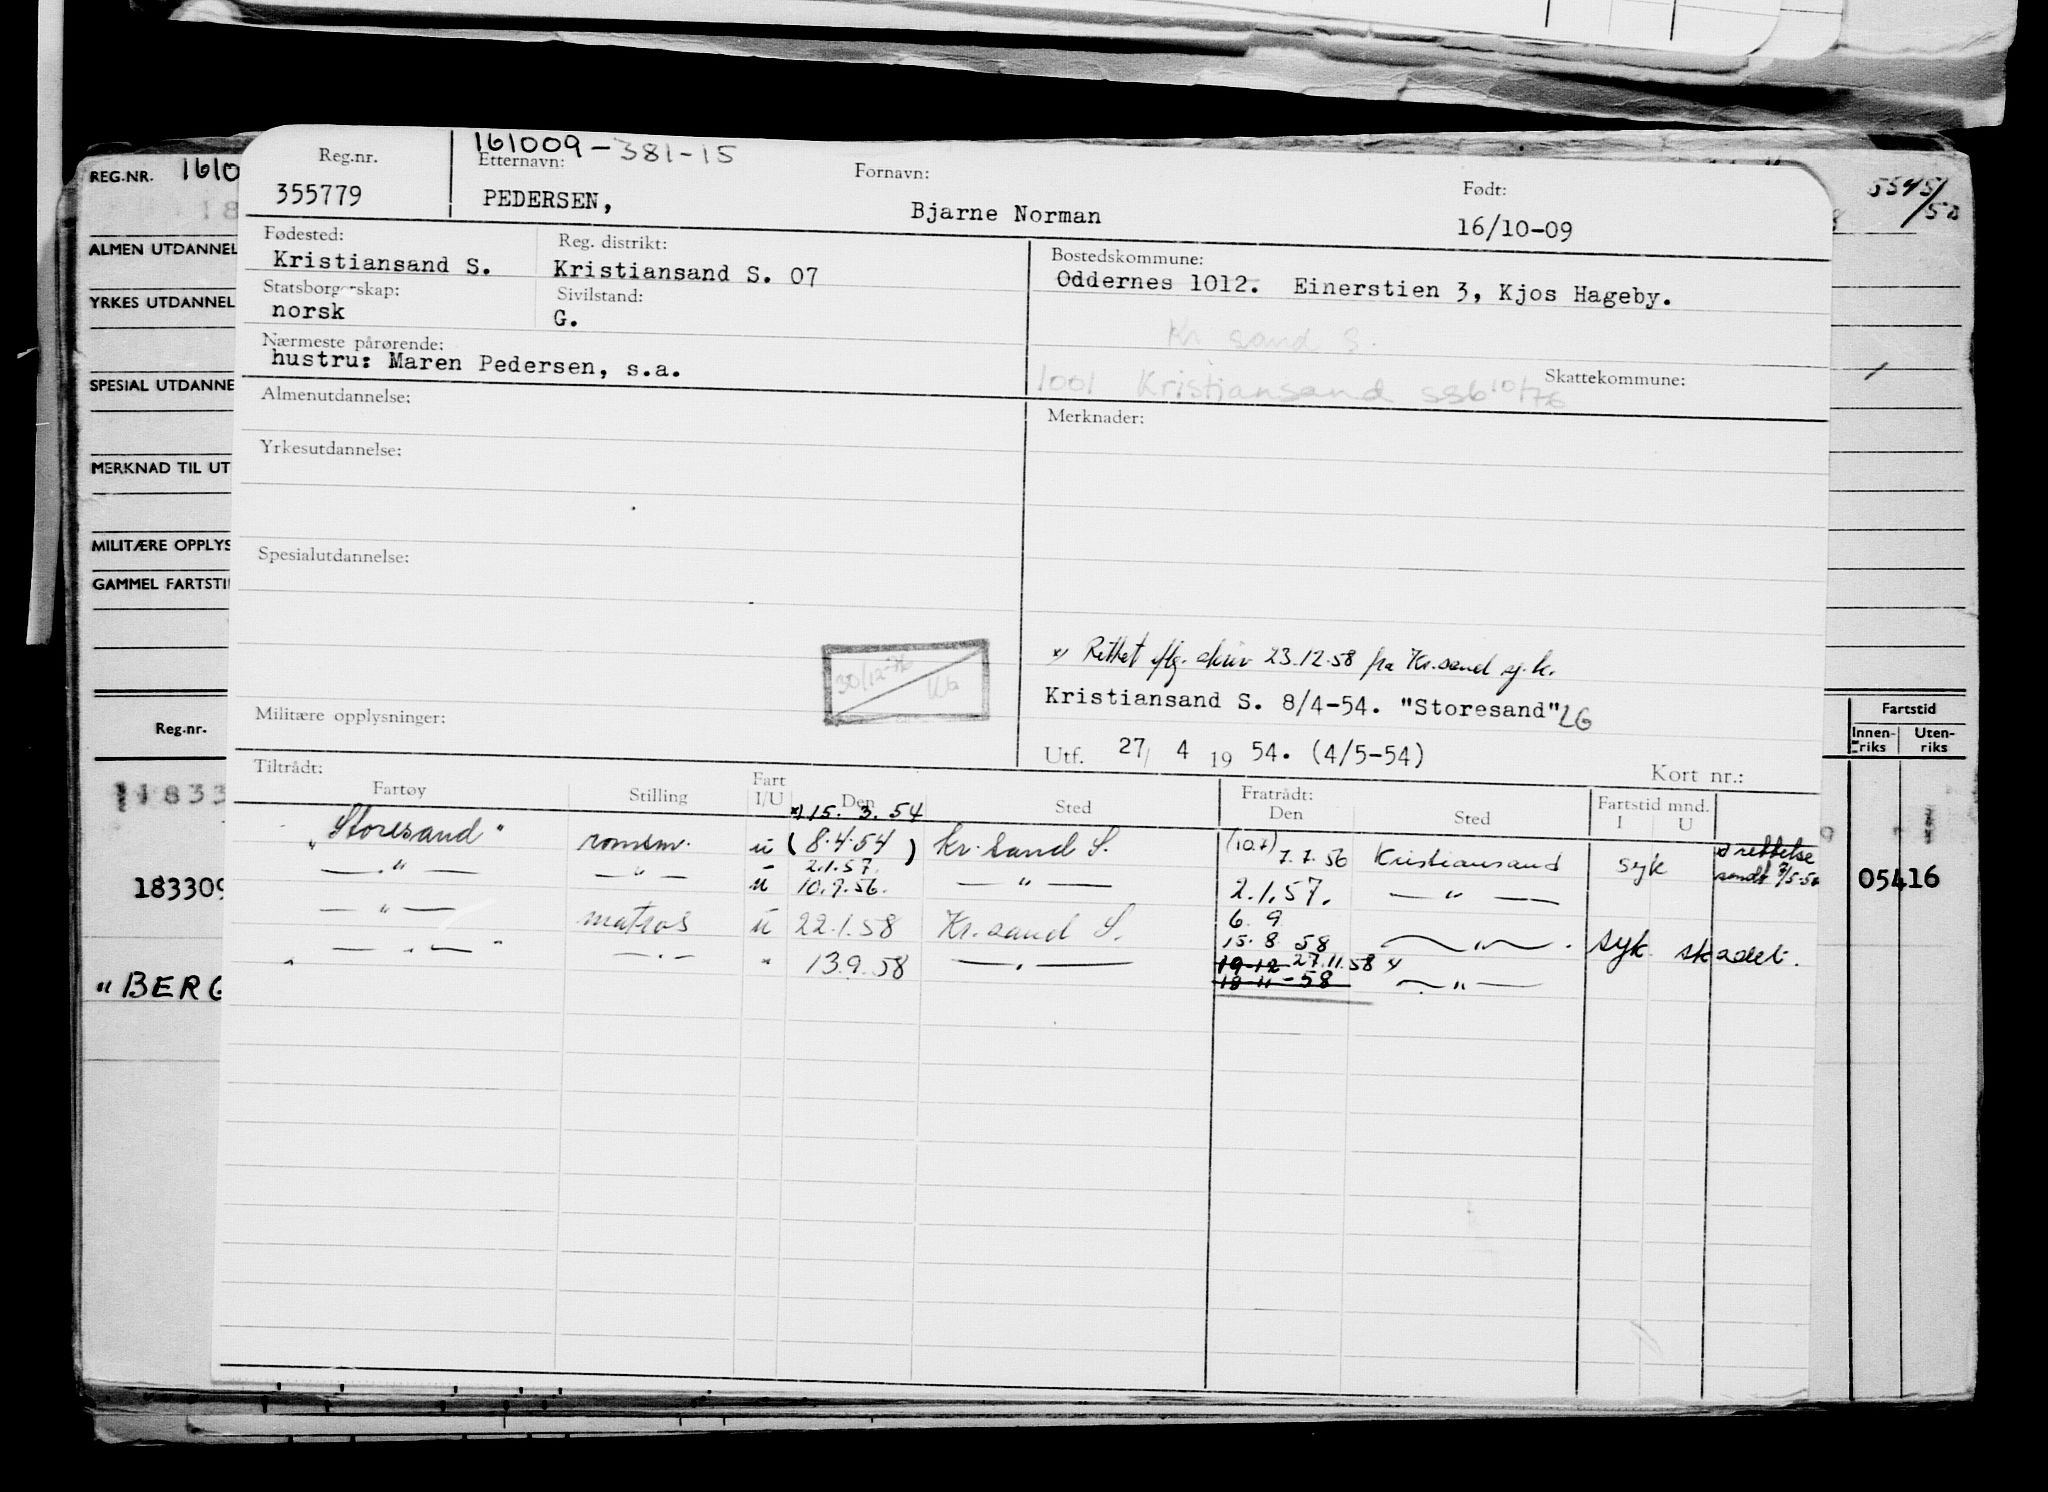 161009-381-15
Reg.nr. Etternavn: Fornavn: Født:
355779 PEDERSEN, Bjarne Norman 16/10-09
Fødested: Reg. distrikt: Bostedskommune:
Kristiansand S. Kristiansand S. 07 Oddernes 1012. Einerstien 3, Kjos Hageby.
Statsborgerskap: Sivilstand:
norsk G.
Kr sand S.
Nærmeste pårørende:
hustru: Maren Pedersen, s.a.
Skattekommune:
1001 Kristiansand
Almenutdannelse: Merknader:
Yrkesutdannelse:
Spesialutdannelse:
x) Rettet iflg. skriv 23.12.58 fra Kr.sand sj.k.
Kristiansand S. 8/4-54. "Storesand" LG
Militære opplysninger:
Utf. 27/ 4 19 54. (4/5-54)
Kort nr.:
Tiltrådt: Fratrådt:
Fartøy Stilling Fart I/U Den Sted Den Sted Fartstid mnd. I U
x) 15. 3. 54
"Storesand" romsm. u (8.4.54) Kr. sand S. (10.7) 7.7.56 Kristiansand syk x rettelse
— " — — " — 2.1.57.
u 10.9.56. — " — 2.1.57. — " —
— " — matros u 22.1.58 Kr. sand S. 6. 9
15. 8 58 — " — . syk skadet.
— " — — " — " 13.9.58 — " — 19-12 27.11.58 x
18-11-58 — " —
REG.NR. 1610
5545/50
ALMEN UTDANNEL
YRKES UTDANNEL
SPESIAL UTDANNE
MERKNAD TIL UT
MILITÆRE OPPLYS
GAMMEL FARTSTI
Reg.nr.
Fartstid
Innen-riks Uten-riks
1833
183309 05416
"BERG